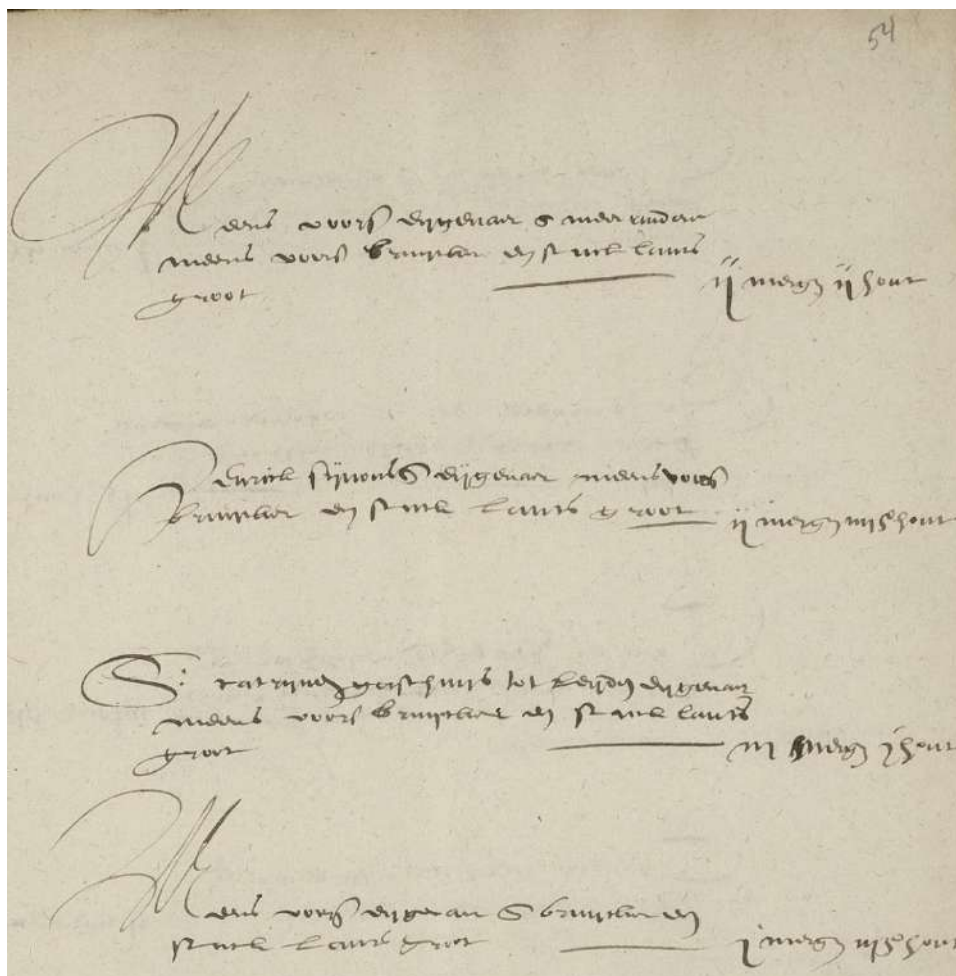 54
Meeus voors eygenaer
meeus voors bruycker een stuck lants
groot ij mergen ij hont
eygenaer meeus voors
bruycker een stuck lants groot ij mergen iiij hont
S: catrynen gasthuys tot leyden eygenaer
meeus voors bruycker een stuck lants
groot iij mergen j hont
Meeus voors eygenaer bruycker een
stuck lants groot j mergen hont